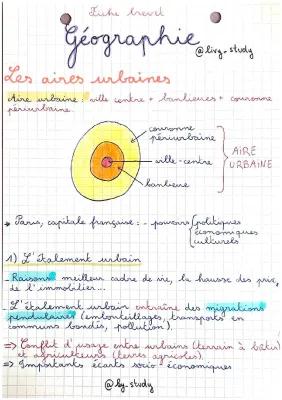 Fiche brevet
Géographie
@livy_study
Les aires urbaines
Aire urbaine : ville centre + banlieues + couronne
périurbaine.
couronne
périurbaine
ville-centre
banlieue
AIRE
URBAINE
* Paris, capitale française : - pouvoirs
politiques
économiques
culturels
1) L'étalement urbain
Raisons meilleur cadre de vie, la hausse des prix,
de l'immobilier...
L'étalement urbain entraîne des migrations
pendulaires (embouteillages, transports en
communs bondés, pollution).
=> Conflit d'usage entre urbains (terrain à bâtir)
et agriculteurs (terres agricoles).
=> Importants écarts socio-économiques
@by_study